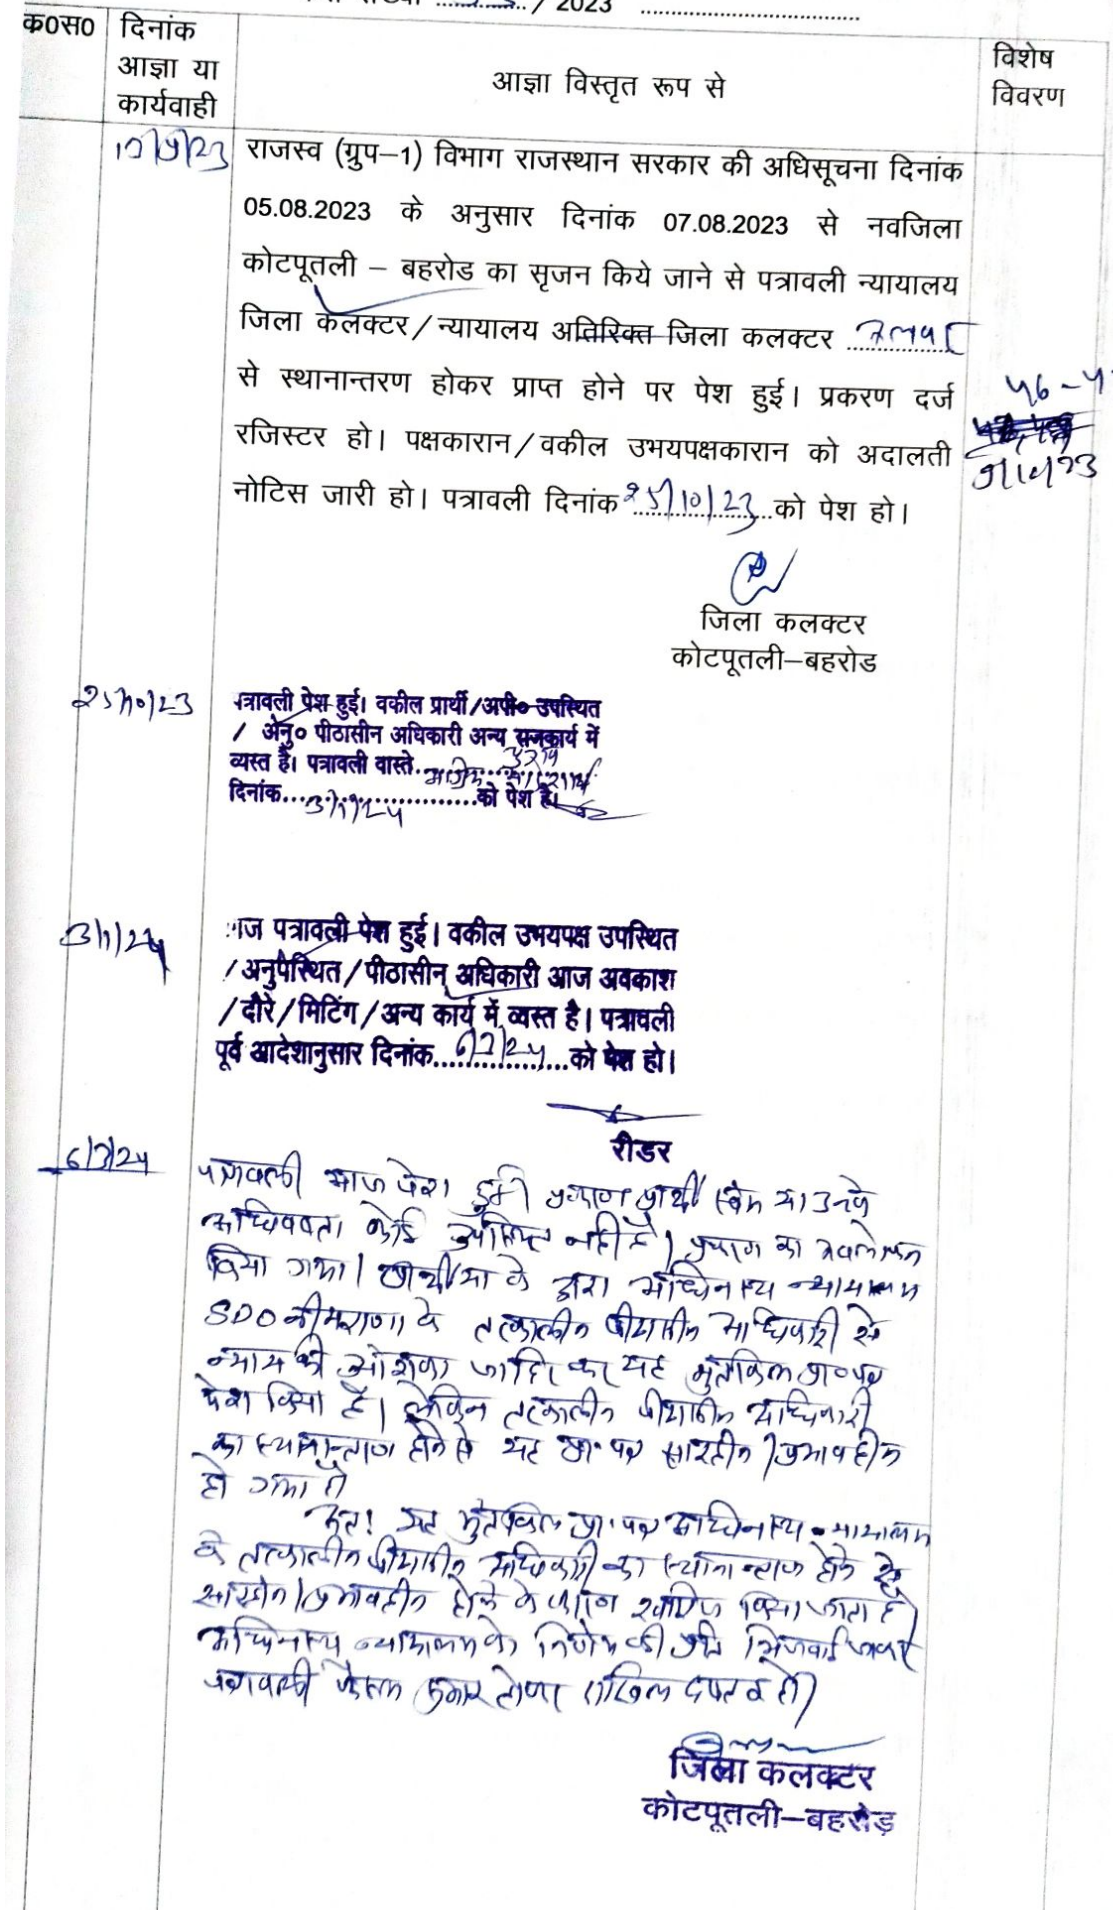 / 2023
क0स0
दिनांक
आज्ञा या
कार्यवाही
आज्ञा विस्तृत रूप से
विशेष
विवरण
राजस्व (ग्रुप–1) विभाग राजस्थान सरकार की अधिसूचना दिनांक
05.08.2023 के अनुसार दिनांक 07.08.2023 से नवजिला
कोटपूतली – बहरोड का सृजन किये जाने से पत्रावली न्यायालय
जिला कलक्टर/न्यायालय अतिरिक्त जिला कलक्टर
से स्थानान्तरण होकर प्राप्त होने पर पेश हुई। प्रकरण दर्ज
रजिस्टर हो। पक्षकारान/वकील उभयपक्षकारान को अदालती
नोटिस जारी हो। पत्रावली दिनांक 25/10/23 को पेश हो।
जिला कलक्टर
कोटपूतली–बहरोड
25/10/23
पत्रावली पेश हुई। वकील प्रार्थी/अपी० उपस्थित
/ अनु० पीठासीन अधिकारी अन्य राजकार्य में
व्यस्त है। पत्रावली वास्ते
दिनांक 3/1/24 को पेश है।
3/1/24
आज पत्रावली पेश हुई। वकील उभयपक्ष उपस्थित
/अनुपस्थित/पीठासीन अधिकारी आज अवकाश
/दौरे/मिटिंग/अन्य कार्य में व्यस्त है। पत्रावली
पूर्व आदेशानुसार दिनांक 6/3/24 को पेश हो।
रीडर
6/3/24
पत्रावली आज पेश हुई। प्रकरण प्रार्थी स्वयं या उनके
अधिवक्ता कोई उपस्थित नहीं है। प्रकरण का अवलोकन
किया गया। प्रार्थीया के द्वारा अधिनस्थ न्यायालय
SDO नीमराणा के तत्कालीन पीठासीन अधिकारी से
न्याय की आशंका जाहिर कर यह मुंतकिल प्रा०पत्र
पेश किया है। लेकिन तत्कालीन पीठासीन अधिकारी
का स्थानान्तरण होने से यह प्रा. पत्र सारहीन/प्रभावहीन
हो गया है
अतः यह मुंतकिल प्रा. पत्र अधिनस्थ न्यायालय
के तत्कालीन पीठासीन अधिकारी का स्थानान्तरण होने से
सारहीन/प्रभावहीन होने के कारण खारिज किया जाता है।
अधिनस्थ न्यायालय के निर्णय की प्रति भिजवाई जाकर
पत्रावली फैसल शुमार होकर दाखिल दफ्तर हो।
जिला कलक्टर
कोटपूतली–बहरोड़